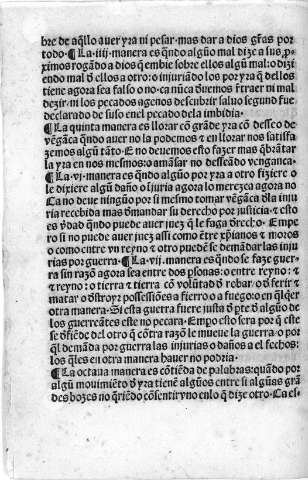 bre de aq̃llo auer yra ni pesar. mas dar a dios gr̃as por
todo. ¶ La .iiij. manera es q̃ndo algũo mal dize a sus p̱
ximos rogãdo a dios q̃ embie sobre ellos algũ mal: o dizi
endo mal ð ellos a otro: o injuriãdo los por yra q̃ dellos
tiene agora sea falso o no. ca nũca ðuemos ẽtraer ni mal
dezir. ni los pecados agenos descubrir saluo segund fue
declarado de suso enel pecado dela imbidia.
¶ La quinta manera es llorar cõ grãde yra cõ desseo de
vẽgãça q̃ndo auer no la podemos ⁊ en llorar nos satisfa
zemos algũ tãto. E no deuemos esto fazer mas q̃brãtar
la yra en nos mesmos: o amãsar no desseãdo vengança.
¶ La .vj. manera es q̃ndo algũo por yra a otro ifiziere o
le dixiere algũ daño o ĩjuria agora lo merezca agora no
Ca no deue ningũo por si mesmo tomar vẽgãça ðla iniu
ria recebida mas ðmandar su derecho por justicia. ⁊ esto
es ṽdad q̃ndo puede auer juez q̃ le faga ðrecho. Empe
ro si no puede auer juez assi como ẽtre xp̃ianos ⁊ moros
o como entre vn reyno ⁊ otro puedẽ se demãdar las iniu
rias por guerra. ¶ La .vij. manera es q̃ndo se faze guer
ra sin razõ agora sea entre dos ꝑsonas: o entre reyno: ⁊
⁊ reyno: o tierra ⁊ tierra cõ volũtad ð robar. o ð ferir ⁊
matar o ðstroyr possessiões a fierro o a fuego: o en q̃lq̃er
otra manera. Si esta guerra fuere justa ð ꝑte ð algũo de
los guerreãtes este no pecara. Emꝑo esto sera por q̃ este
se ðfiẽde ðel otro q̃ cõtra razõ le mueue la guerra. o por
q̃l demãda por guerra las injurias o daños a el fechos:
los q̃les en otra manera hauer no podria.
¶ La octaua manera es cõtiẽda de palabras: quãdo por
algũ mouimiẽto ð yra tienẽ algũos entre si algũas grã
des bozes no q̃riẽdo cõsentir vno enlo q̃ dize otro. Ca es-